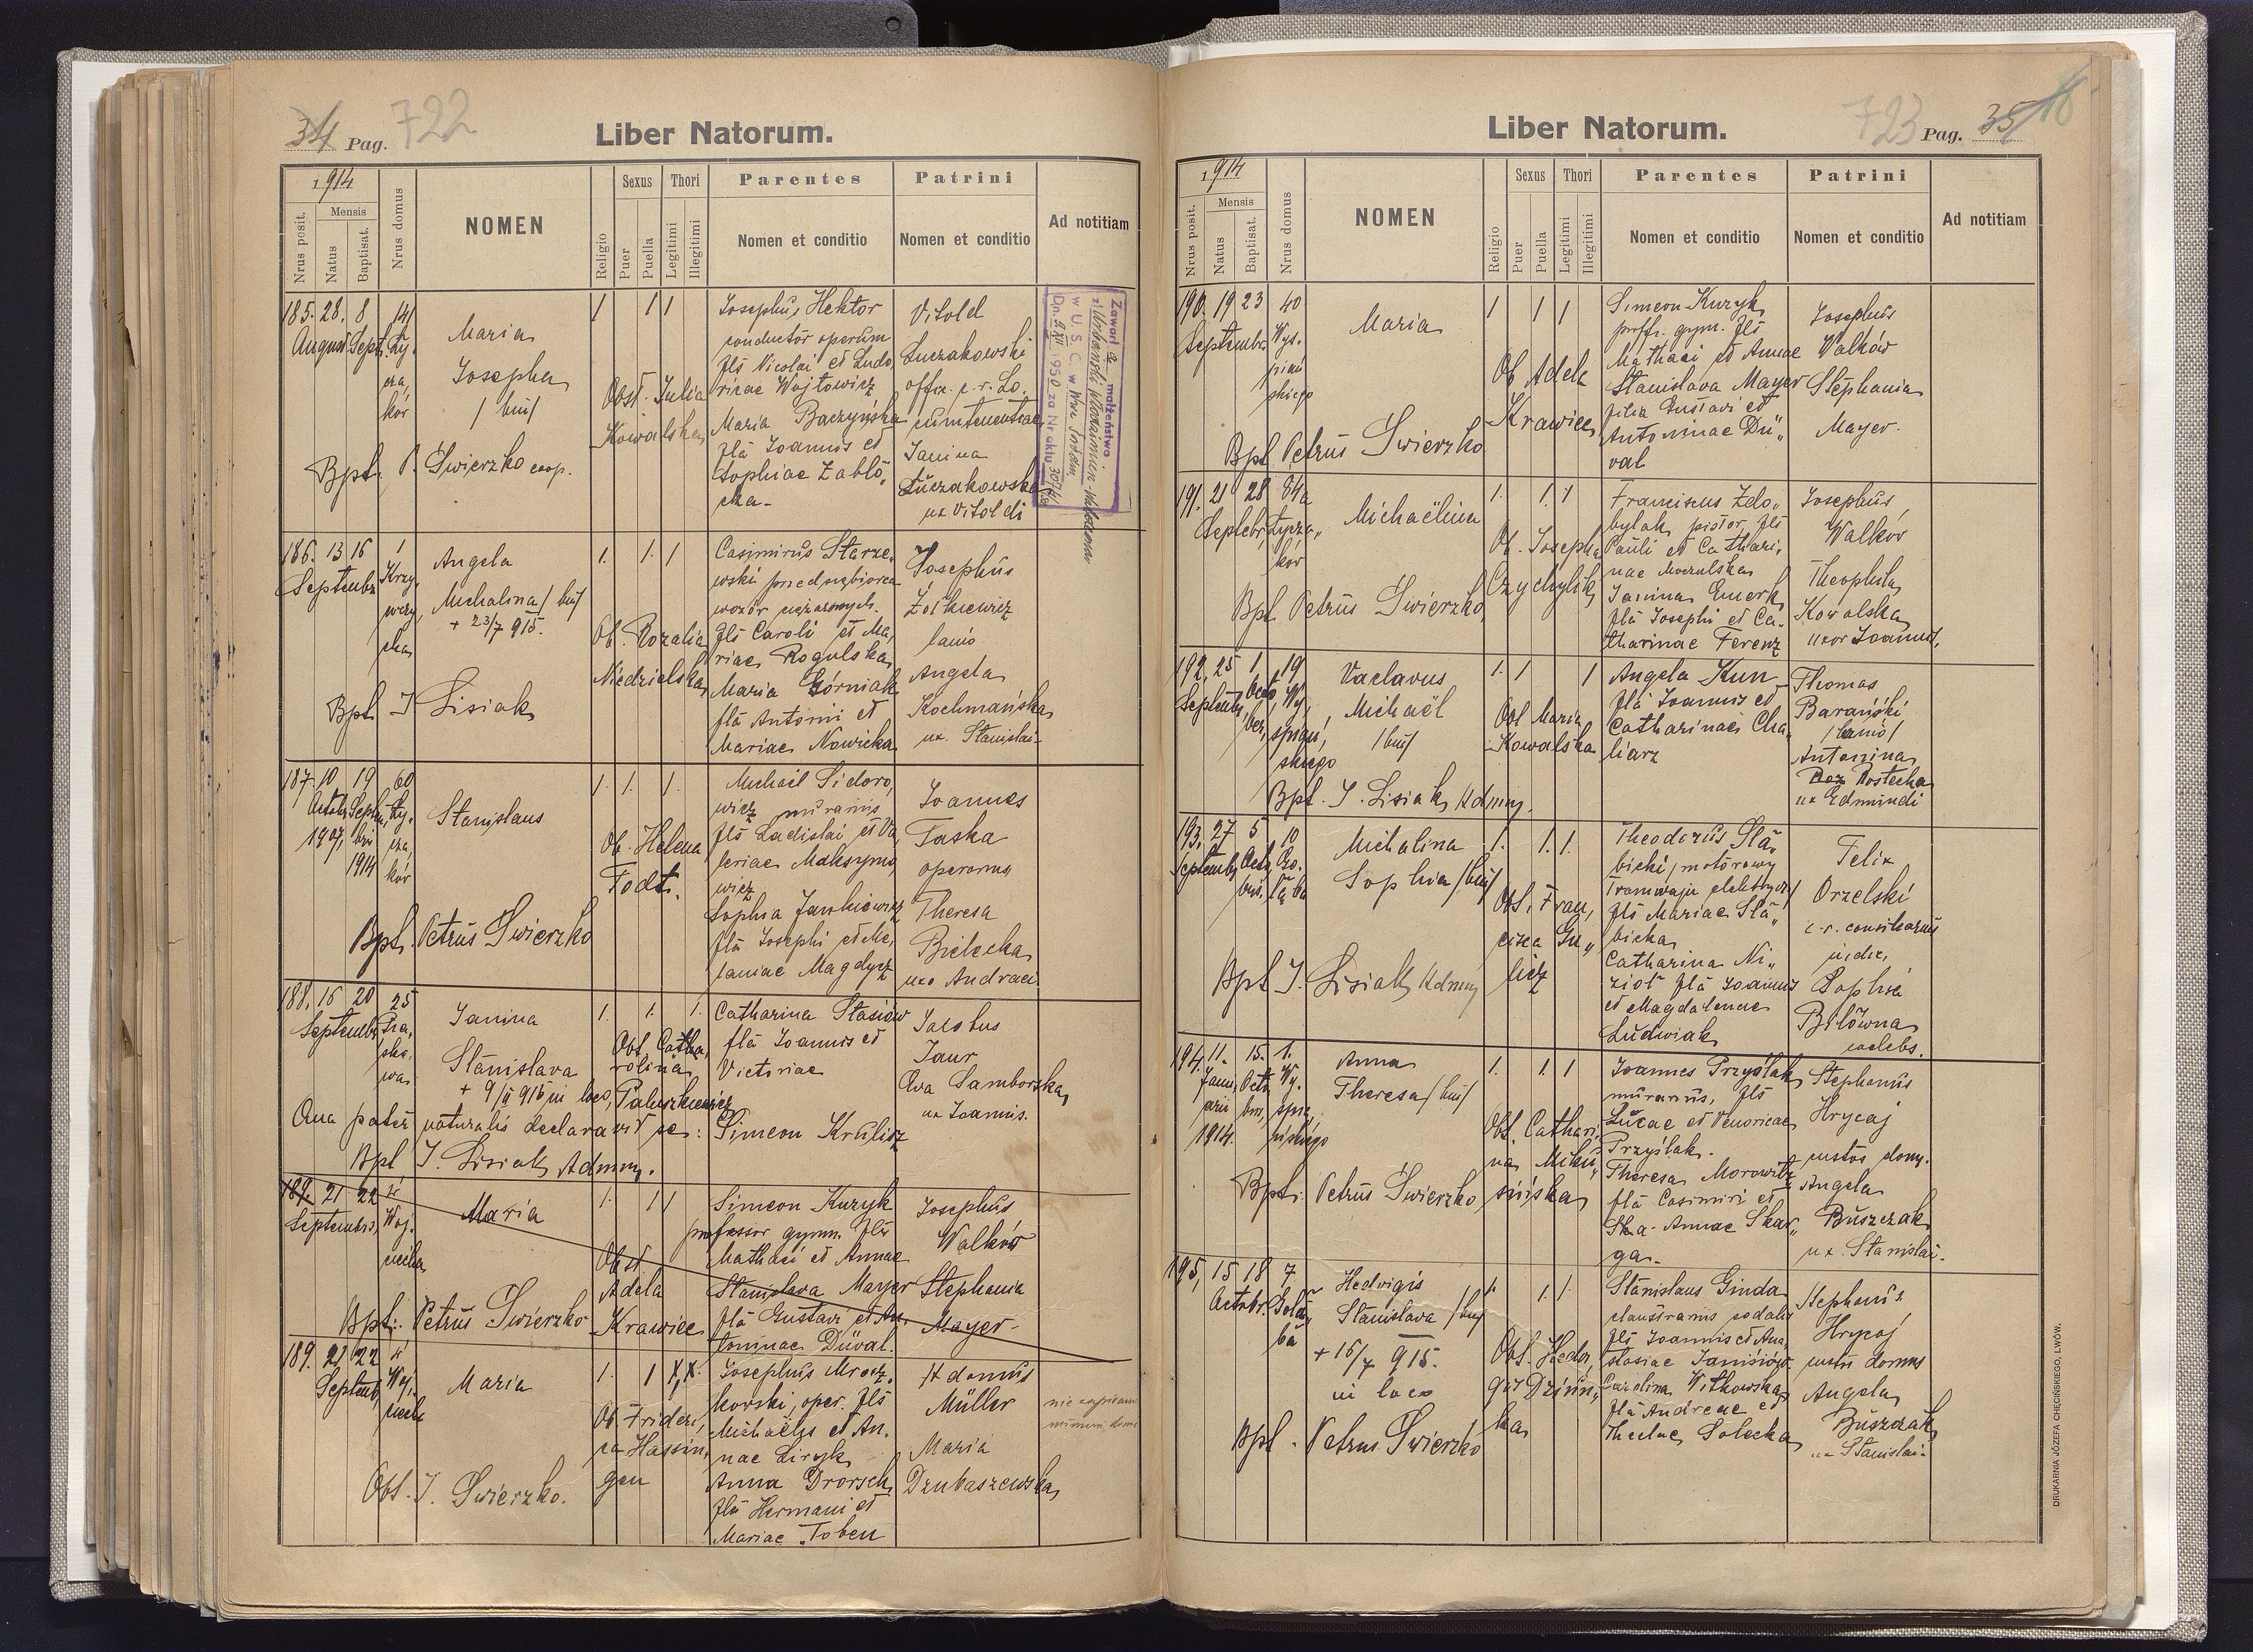 34 Pag. 722
Liber Natorum.
1914
Nrus posit.
Mensis
Natus
Baptisat.
Nrus domus
NOMEN
Religio
Sexus
Puer
Puella
Thori
Legitimi
Illegitimi
Parentes
Nomen et conditio
Patrini
Nomen et conditio
Ad notitiam
185. 28. 8 14
August. Sept. Ły,
cza,
ków
Maria
Josepha
/ bin/
Bpt. P. Świerzko coop.
1 1 1
Obst. Julia
Kowalska
Josephus Hektor
conductor operum
fls Nicolai et Ludo,
vicae Wojtowicz
Maria Baczyńska
fla Joannis et
Sophiae Zabło,
cka
Vitold
Łuczakowski
offic. c. r. Lo.
cumtenentiae
Janina
Łuczakowska
ux Vitoldi
Zawarł a małżeństwo
w U. S. C. w
Dn. 1950 za Nr aktu
186. 13 16 1
Septembr. Krzy,
wczy,
cka
Angela
Michalina / bin/
+ 23/7 915.
Bpt J Lisiak
1. 1. 1
Ob. Rozalia
Niedzielska
Casimirus Starze,
wski przedsiębiorca
wozów ciężarowych.
fls Caroli et Ma,
riae Rogulska
Maria Górniak
fla Antonii et
Mariae Nowicka
Josephus
Żółkiewicz
lanio
Angela
Kochmańska
ux. Stanislai
187. 10 19 60
Octob. Septem, Ły.
1907, bri cza,
1914 ków
Stanislaus
Bpt. Petrus Świerzko
1. 1. 1.
Ob. Helena
Todt.
Michaël Sidoro,
wicz murarius
fls Ladislai et Va,
leriae Maksymo,
wicz
Sophia Jankiewicz
fla Josephi et Me,
laniae Magdycz
Joannes
Taska
operarius
Theresa
Bielecka
uxo Andreae
188. 16 20 25
Septembr. Pia,
sko,
wa
Janina
Stanislava
+ 9/II 915 in loco,
1. 1. 1.
Obt Catha,
rolina
Paluszkiewicz
Catharina Stasiów
fla Joannis et
Victoriae
Jacobus
Jaur
Eva Samborska
ux Joannis.
Qua pater naturalis declaravit se: Simeon Krulisz
Bpt J. Lisiak Admin.
189. 21 22 4
Septembris, Woj,
ciecha
Maria
Bpt. Petrus Świerzko
1. 1 1
Obst.
Adela
Krawiec
Simeon Kuzyk
professor gymn. fls
Mathaei et Annae
Stanislava Mayer
fla Gustavi et An,
toninae Düval.
Josephus
Walków
Stephania
Mayer
189. 21 22 4
Septemb, Woj,
ciecha
Maria
Obt. J. Świerzko.
1. 1 X, X.
Ob. Frideri,
ca Hassin,
gen
Josephus Mrocz,
kowski, oper. fls
Michaëlis et An,
nae Liryk
Anna Drorsch
fla Hermani et
Mariae Toben
Adamus
Müller
Maria
Dzubaszewska
nie zapisano
numeru domu
Liber Natorum.
723 Pag. 35
1914
Nrus posit.
Mensis
Natus
Baptisat.
Nrus domus
NOMEN
Religio
Sexus
Puer
Puella
Thori
Legitimi
Illegitimi
Parentes
Nomen et conditio
Patrini
Nomen et conditio
Ad notitiam
190. 19 23 40
Septembr. Wys.
piań
skiego
Maria
Bpt Petrus Świerzko
1 1 1
Ob Adela
Krawiec
Simeon Kuzyk
proff. gym. fls
Mathaei et Annae
Stanislava Mayer
filia Gustavi et
Antoninae Dü,,
val
Josephus
Walków
Stephania
Mayer
191. 21 28 84a
Septebr, Łycza,,
ków
Michaëlina
Bpt Petrus Świerzko
1. 1. 1
Ob. Josepha
Czychylik
Franciscus Zelo,,
bylak pistor, fls
Pauli et Cathari,
nae Moczulska
Janina Emerk
fla Josephi et Ca,
tharinae Ferenz
Josephus
Walków
Theophila
Kowalska
uxor Joannis,
192. 25 1 19
Septemb, Octo, Wy,
ber, spiań,
skiego
Vaclavus
Michaël
/bin/
Bpt. J. Lisiak Admin.
1. 1 1
Obt Maria
Kowalska
Angela Kun
fla Joannis et
Catharinae Cha,
liarz
Thomas
Barański
/lanio/
Antonina
Rostecka
ux Edmundi
193. 27 5 10
Septemb, Octo,
bris.
Michalina
Sophia /bin/
Bpt J. Lisiak Admin
1. 1. 1.
Obt. Fran,
cisca Gu,,
licz
Theodorus Sła,
bicki, motorowy
Tramwaju elektrycz/
fls Mariae Sła,,
bicka
Catharina Ni,,
ziot fla Joannis
et Magdalenae
Ludwiak
Felix
Orzelski
c. r. consiliarius
judic,
Sophia
Biłówna
caelebs.
194. 11. 15. 1.
Janu, Octo, Wy.
arii bris, spia,
1914. ńskiego
Anna
Theresa /bin/
Bpt. Petrus Świerzko
1. 1. 1
Obt. Cathari,
na Miku,
sińska
Joannes Przyślak
murarius, fls
Lucae et Venonicae
Przyślak.
Theresa Morowitz
fla Casimiri et
Annae Skar,,
ga.
Stephanus
Hrycaj
custos dom.
Angela
Buszczak
ux. Stanislai.
195, 15 18 7
Octobr. Gołę,
bia
Hedvigis
Stanislava /bin/
+ 16/7 915.
in loco
Bpt. Petrus Świerzko
1. 1. 1.
Obt. Hedvi,
gis Dziun,,
ka
Stanislaus Ginda
claustrarius sodalis
fls Joannis et Ana,
stasiae Janisiów
Carolina Witkowska
fla Andreae et
Theclae Solecka
Stephanus
Hrycaj
custos domus
Angela
Buszczak
ux Stanislai.
DRUKARNIA JÓZEFA CHĘCIŃSKIEGO, LWÓW.